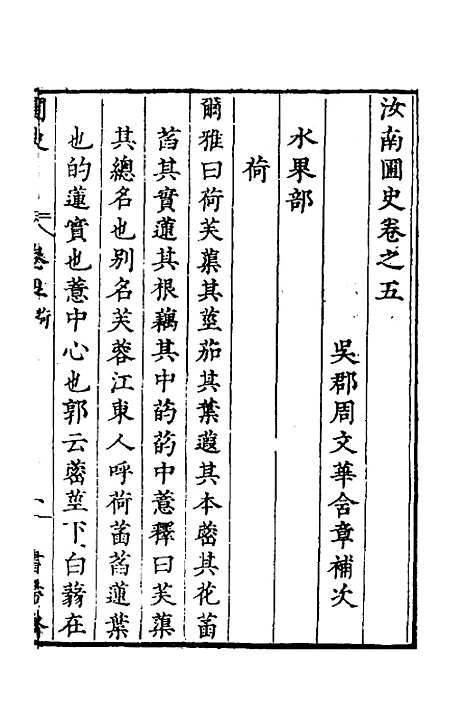 汝南圃史卷之五
吳郡周文華含章補次
水果部
荷
爾雅曰荷芙蕖其莖茄其葉蕸其本蔤其花菡
萏其實蓮其根藕其中菂菂中薏釋曰芙蕖
其總名也别名芙蓉江東人呼荷菡萏蓮葉
也的蓮實也薏中心也郭云蔤莖下白蒻在
圃史